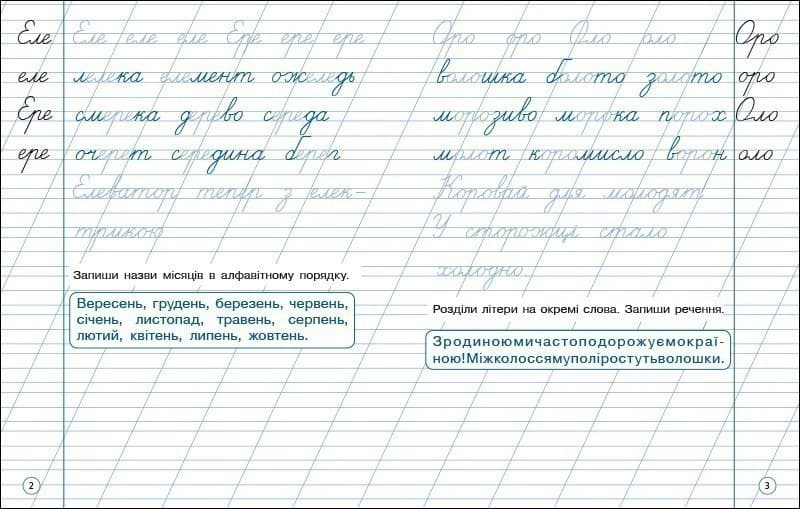 Еле Еле еле еле Ере ере ере
еле лелека елемент ожеледь
Ере смерека дерево середа
ере очерет середина берег
Елеватор тепер з елек-
трикою
Запиши назви місяців в алфавітному порядку.
Вересень, грудень, березень, червень,
січень, листопад, травень, серпень,
лютий, квітень, липень, жовтень.
2
Оро оро Оло оло Оро
волошка болото золото оро
морозиво морока порох Оло
молот коромисло ворон оло
Коровай для молодят
У сторожці стало
холодно
Розділи літери на окремі слова. Запиши речення.
Зродиноюмичастоподорожуємокраї-
ною!Міжколоссямуполіростутьволошки.
3